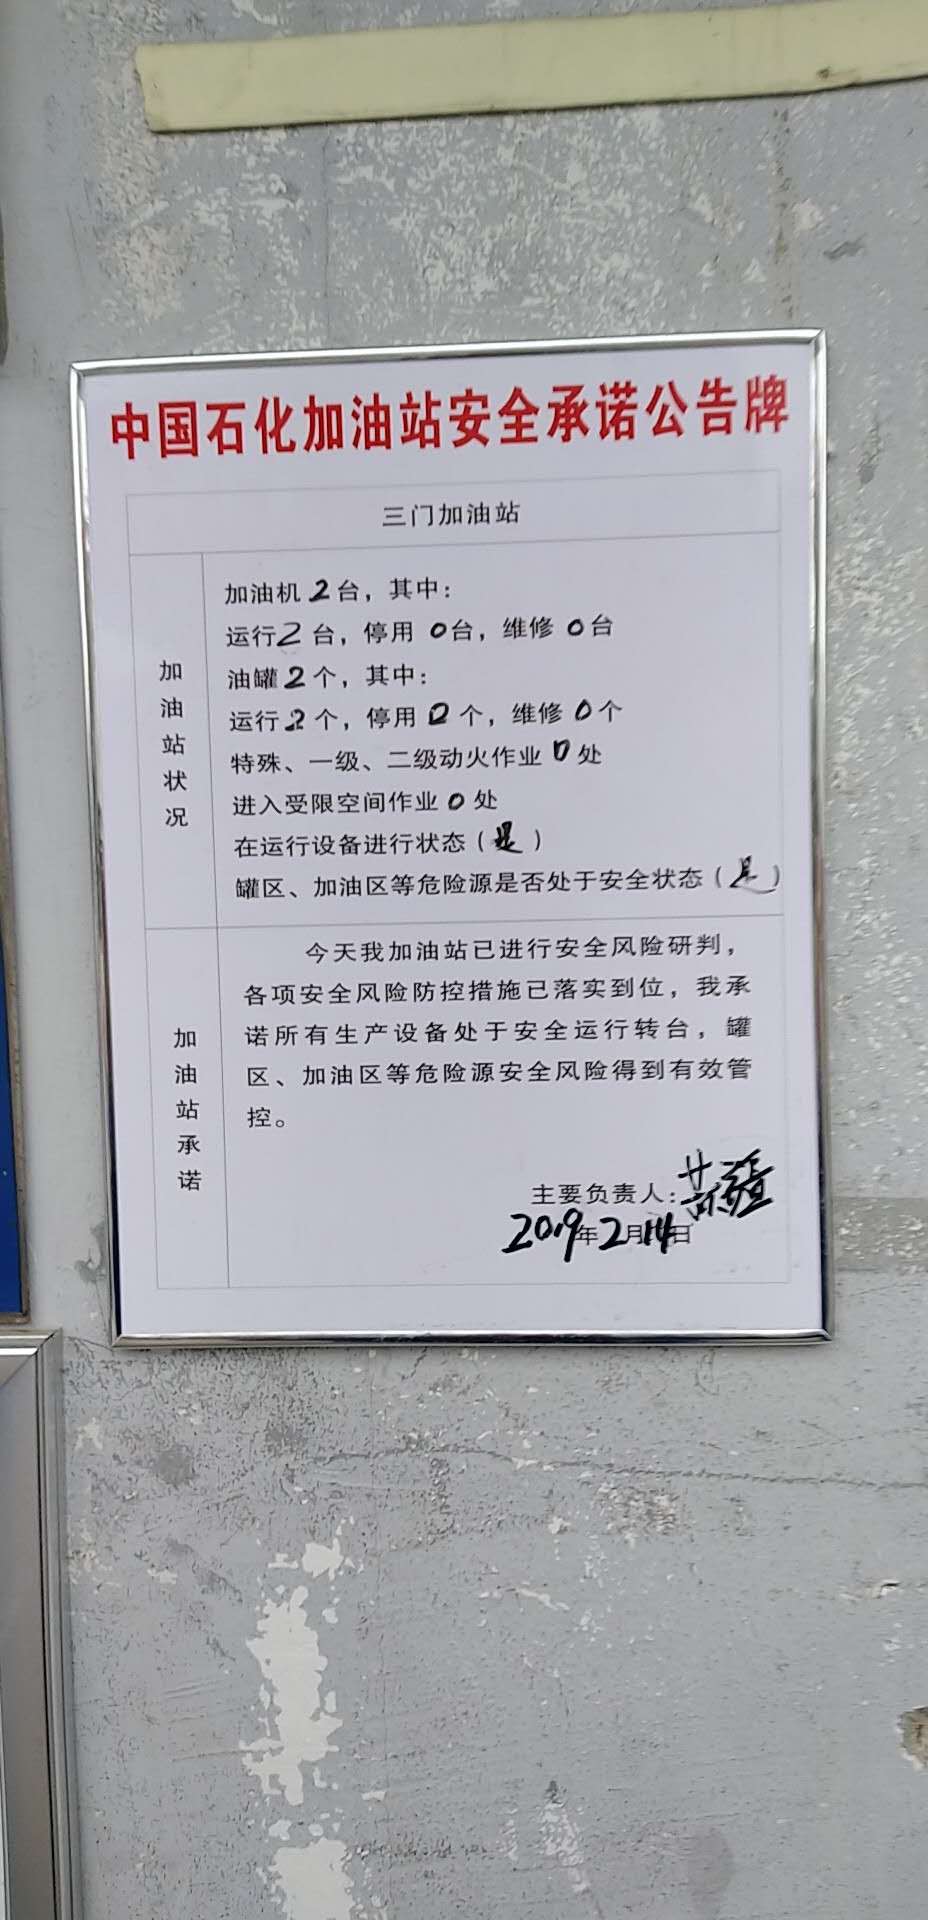 中国石化加油站安全承诺公告牌
三门加油站
加油站状况
加油机 2 台，其中：
运行 2 台，停用 0 台，维修 0 台
油罐 2 个，其中：
运行 2 个，停用 0 个，维修 0 个
特殊、一级、二级动火作业 0 处
进入受限空间作业 0 处
在运行设备进行状态（是）
罐区、加油区等危险源是否处于安全状态（是）
加油站承诺
今天我加油站已进行安全风险研判，
各项安全风险防控措施已落实到位，我承
诺所有生产设备处于安全运行转台，罐
区、加油区等危险源安全风险得到有效管
控。
主要负责人：
2019年2月14日